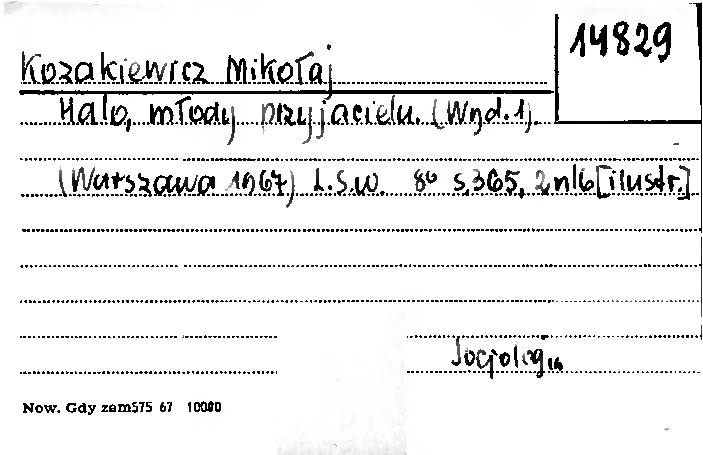 14829
Kozakiewicz Mikołaj
Halo, młody przyjacielu. (Wyd. 1).
(Warszawa 1967) L.S.W. 8° s.365, 2nlb [ilustr.]
Socjologia
Now. Gdy zam575 67 10000